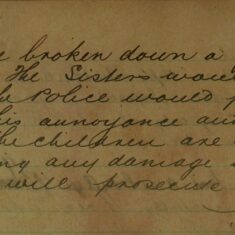 broken down a
The Sisters would
Police would
annoyance and
the children are
any damage
will prosecute